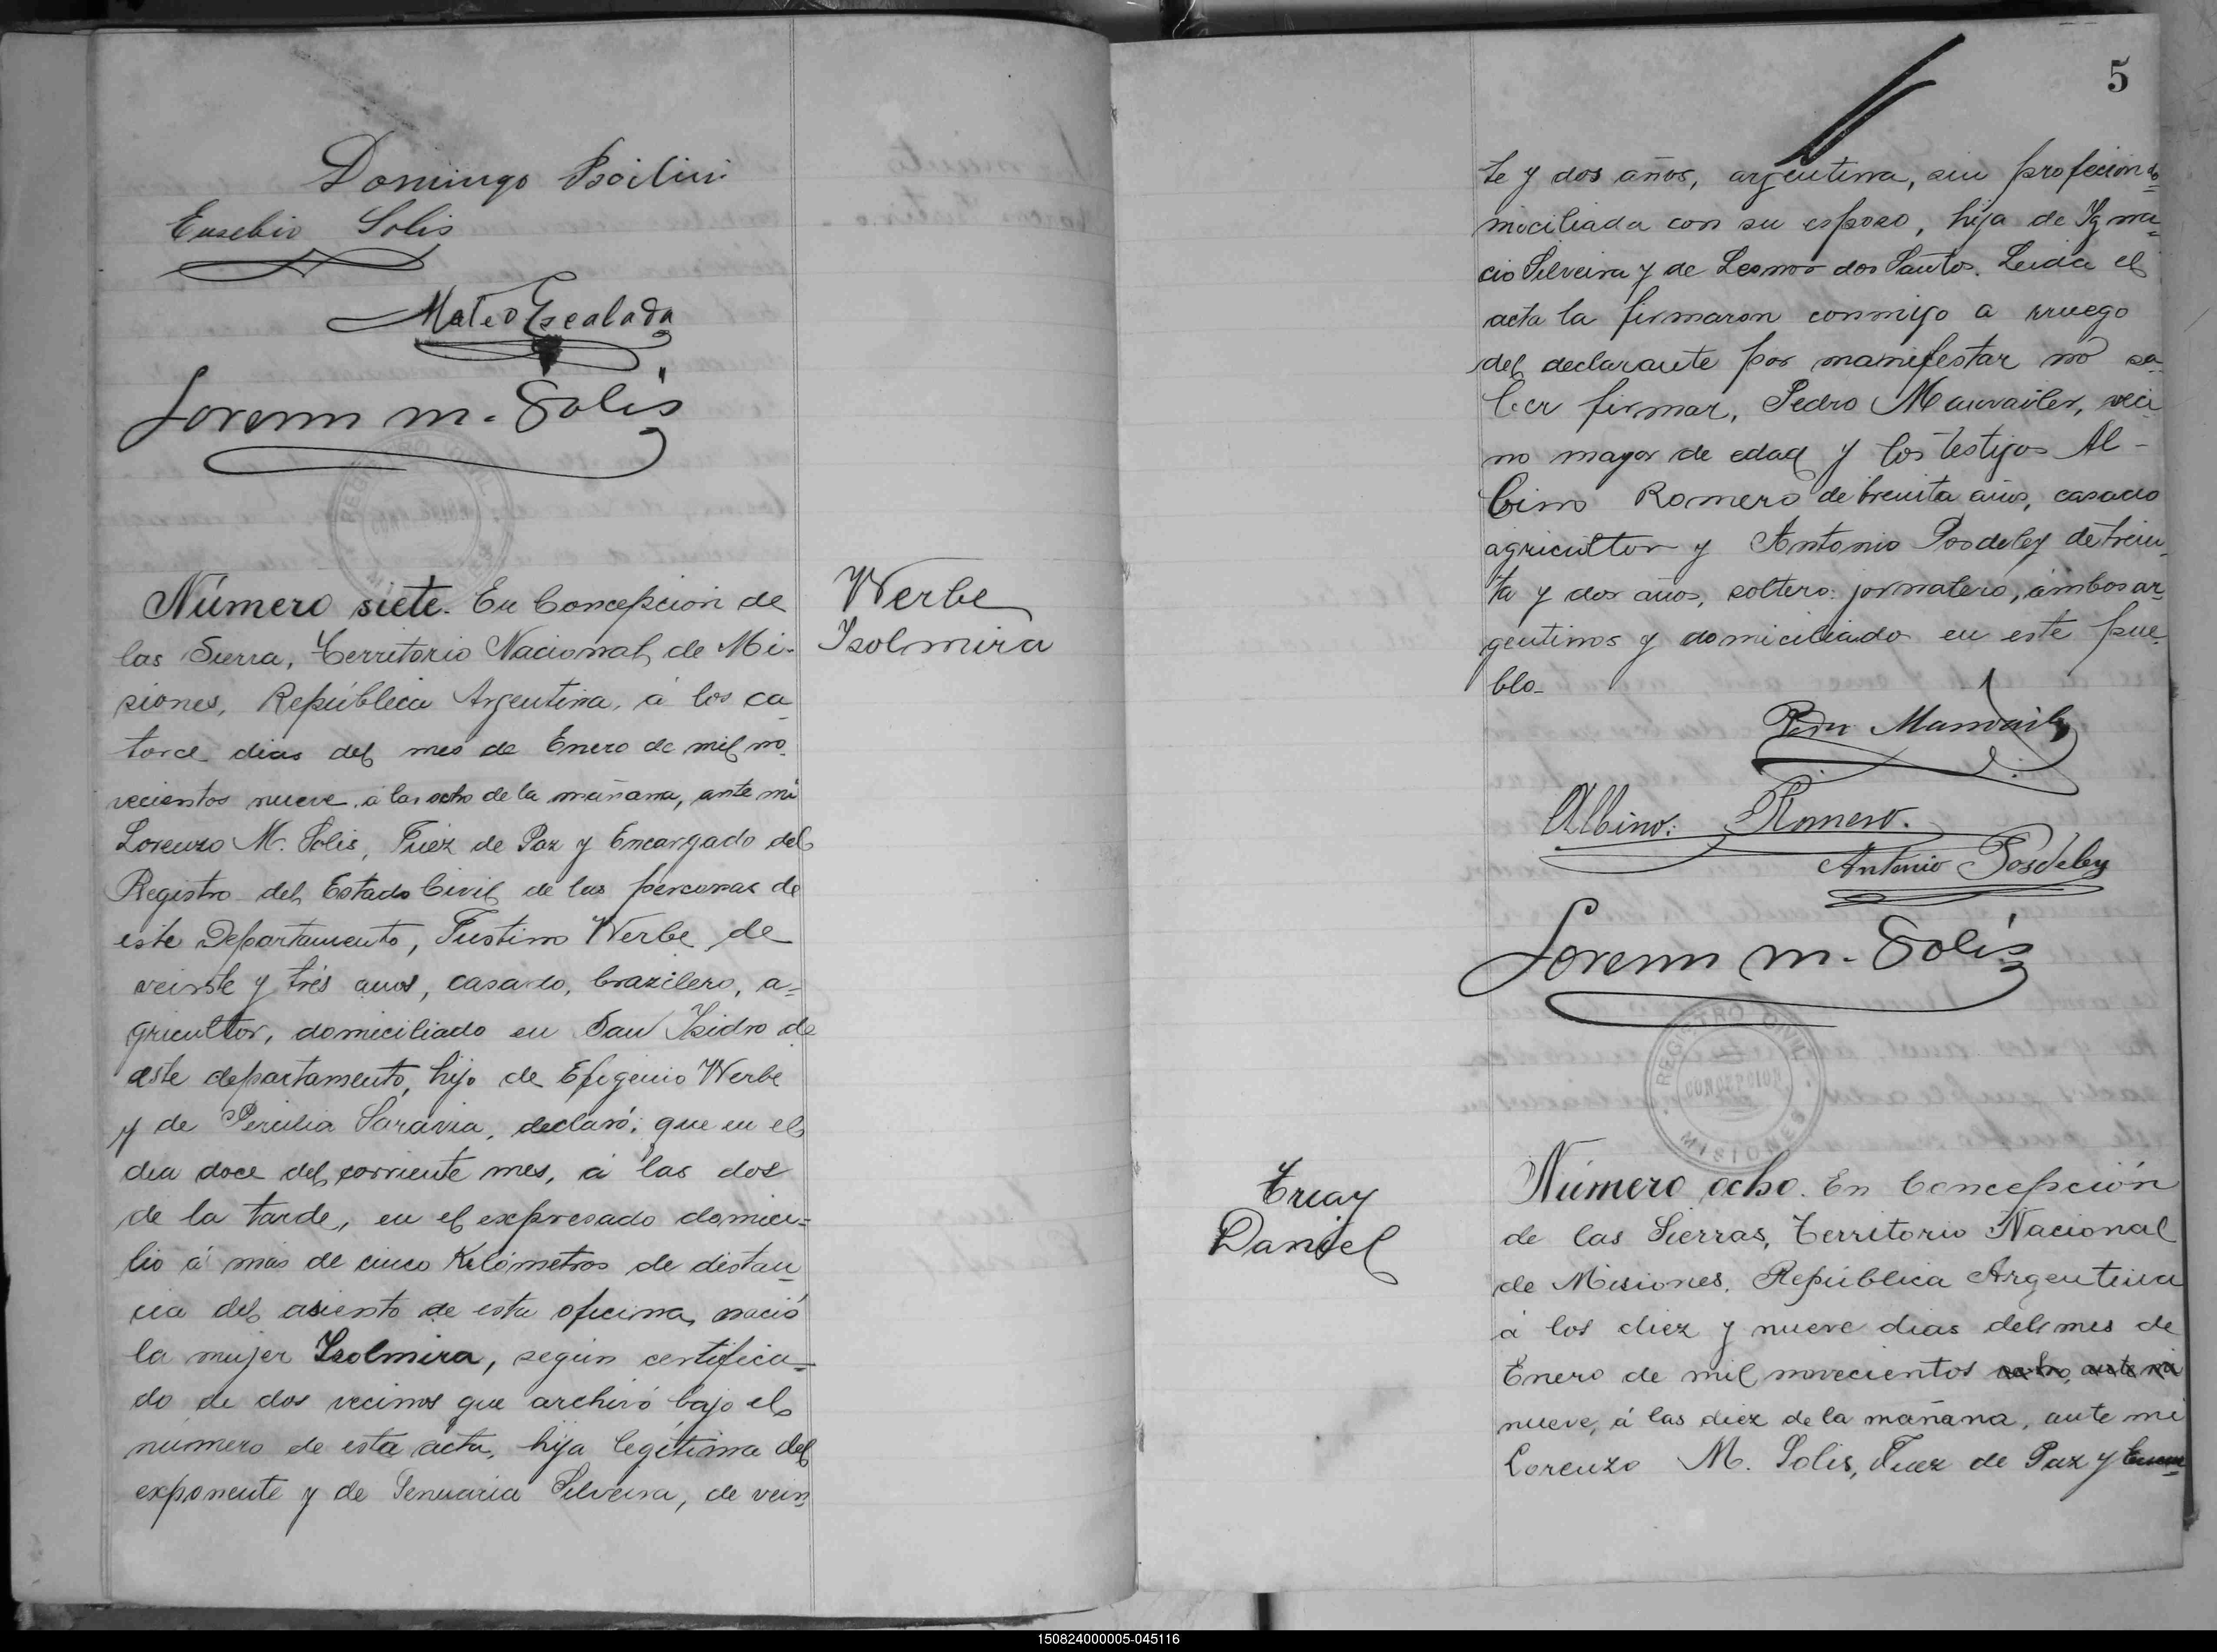 Domingo
Eusebio Solis
Mateo Escalada
Lorenzo M. Solis
Número siete. En Concepcion de
las Sierra, Territorio Nacional de Mi-
siones, República Argentina, á los ca-
torce dias del mes de Enero de mil no-
vecientos nueve á las ocho de la mañana, ante mi
Lorenzo M. Solis, Juez de Paz y Encargado del
Registro del Estado Civil de las personas de
este Departamento, Justino Werbe de
veinte y trés anos, casado, brazilero, a=
gricultor, domiciliado en San Isidro de
este departamento, hijo de Efigenio Werbe
y de Percilia Saravia, declaró: que en el
dia doce del corriente mes, á las dos
de la tarde, en el expresado domici=
lio á más de cinco Kilómetros de distan-
cia del asiento de esta oficina, nació
la mujer Isolmira, según certifica=
do de dos vecinos que archivó bajo el
número de esta acta, hija legítima del
exponente y de Jenuaria Silveira, de vein
Werbe
Isolmira
5
te y dos años, argentina, sin profecion do=
miciliada con su esposo, hija de Igna=
cio Silveira y de Leonor dos Santos. Leida el
acta la firmaron conmigo a rruego
del declarante por manifestar no sa-
ber firmar, Pedro veci
no mayor de edad y los testigos Al-
bino Romero de treinta años, casado
agricultor y Antonio Posdeley de trein-
ta y dos años, soltero jornalero, ámbos ar-
gentinos y domiciliado en este pue-
blo-
Albino Romero.
Antonio Posdeley
Lorenzo M. Solis
REGISTRO CIVIL
CONCEPCION
MISIONES
Número ocho. En Concepción
de las Sierras, Territorio Nacional
de Misiones, República Argentina
á los diez y nueve dias del mes de
Enero de mil novecientos ocho, ante mi
nueve, á las diez de la mañana, ante mi
Lorenzo M. Solis, Juez de Paz y
Truay
Daniel
150824000005-045116